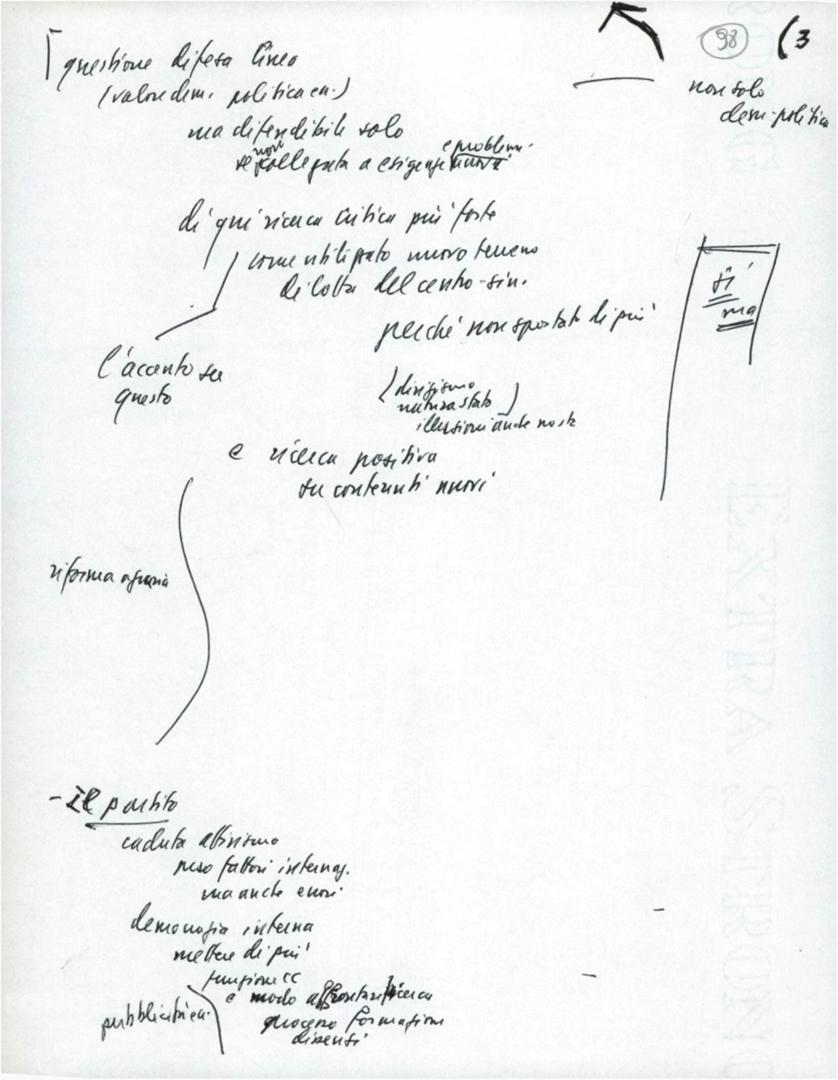 98
(3
questione difesa linea
(valore dem. politica ec.)
non solo
dem. politica
ma difendibile solo
se non collegata a esigenze nuove
e problemi
di qui ricerca critica più forte
come utilizzato nuovo terreno
di lotta del centro-sin.
sì
ma
perché non spostato di più
l'accento su
questo
(dirigismo
natura stato)
illusioni anche nostre
e ricerca positiva
su contenuti nuovi
riforma agraria
- Il partito
caduta attivismo
peso fattori internaz.
ma anche errori
democrazia interna
mettere di più
funzione CC
e modo affrontare ricerca
pubblicità
processo formazione
dissensi